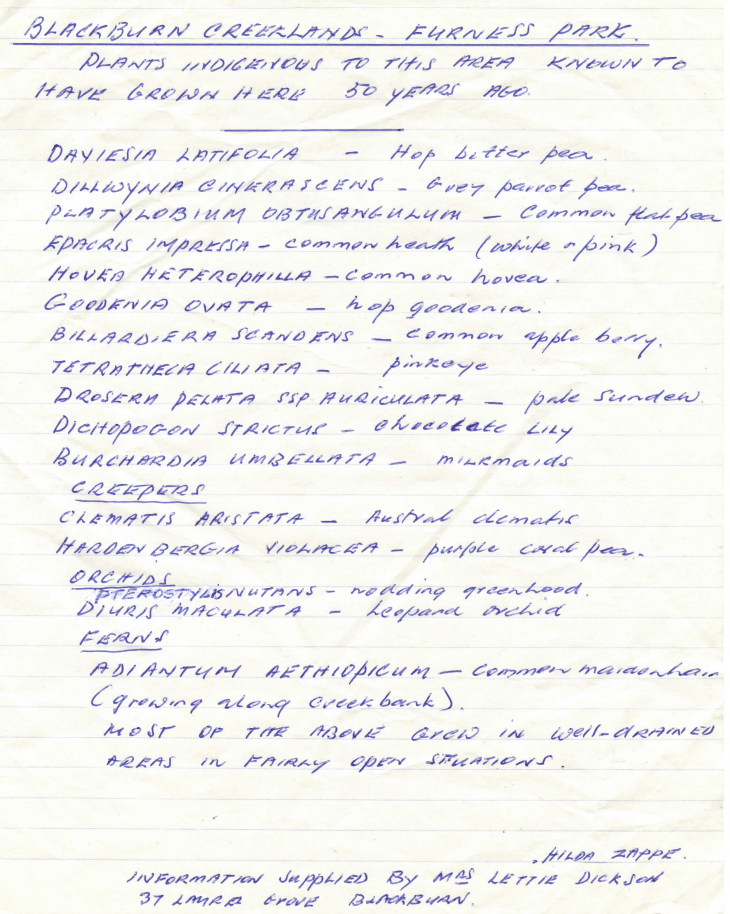 BLACKBURN CREEKLANDS - FURNESS PARK.
PLANTS INDIGENOUS TO THIS AREA KNOWN TO
HAVE GROWN HERE 50 YEARS AGO.
DAVIESIA LATIFOLIA - Hop bitter pea.
DILLWYNIA CINERASCENS - Grey parrot pea.
PLATYLOBIUM OBTUSANGULUM - Common flat pea
EPACRIS IMPRESSA - common heath (white or pink)
HOVEA HETEROPHILLA - common hovea.
GOODENIA OVATA - hop goodenia.
BILLARDIERA SCANDENS - common apple berry.
TETRATHECA CILIATA - pinkeye
DROSERA PELATA SSP AURICULATA - pale sundew.
DICHOPOGON STRICTUS - chocolate LILY
BURCHARDIA UMBELLATA - milkmaids
CREEPERS
CLEMATIS ARISTATA - Austral clematis
HARDENBERGIA VIOLACEA - purple coral pea.
ORCHIDS
PTEROSTYLIS NUTANS - nodding greenhood.
DIURIS MACULATA - Leopard orchid
FERNS
ADIANTUM AETHIOPICUM - common maidenhair
(growing along creek bank).
MOST OF THE ABOVE GREW IN WELL-DRAINED
AREAS IN FAIRLY OPEN SITUATIONS.
HILDA ZAPPE.
INFORMATION SUPPLIED BY MRS LETTIE DICKSON
37 LAUREL GROVE BLACKBURN.